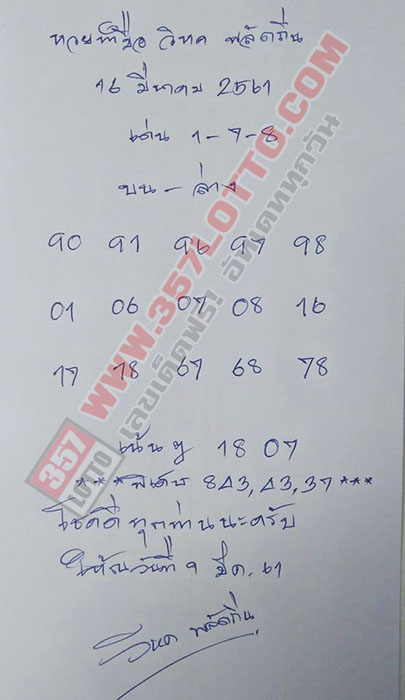 หวยพี่ชื่อ วิหค พลัดถิ่น
16 มีนาคม 2561
เด่น 1-7-8
บน - ล่าง
90 91 96 97 98
01 06 07 08 16
17 18 67 68 78
เน้นๆ 18 07
***พิเศษ 843, 43, 37***
โชคดีทุกท่านนะครับ
ให้ณวันที่ 9 มีค. 61
วิหค พลัดถิ่น
357 LOTTO
WWW.357LOTTO.COM
เลขเด็ดฟรี! อัพเดททุกวัน